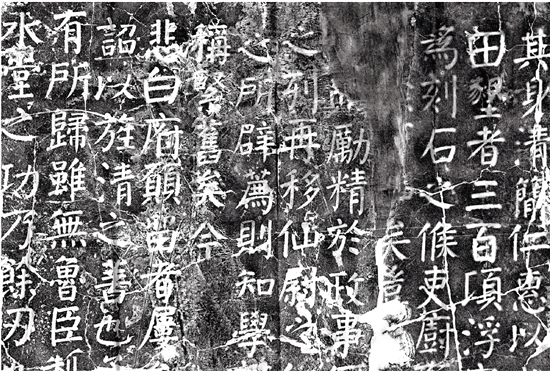 其身清簡仁惠以
田墾者三百頃浮
爲刻石之候吏廚
矣豈
勵精於政事
列再移仙尉之
所辟薦則知學
稱繄舊矣今
悲白府顛留者屢
詔以旌清之善也
有所歸雖無魯臣
水之功乃餘刃